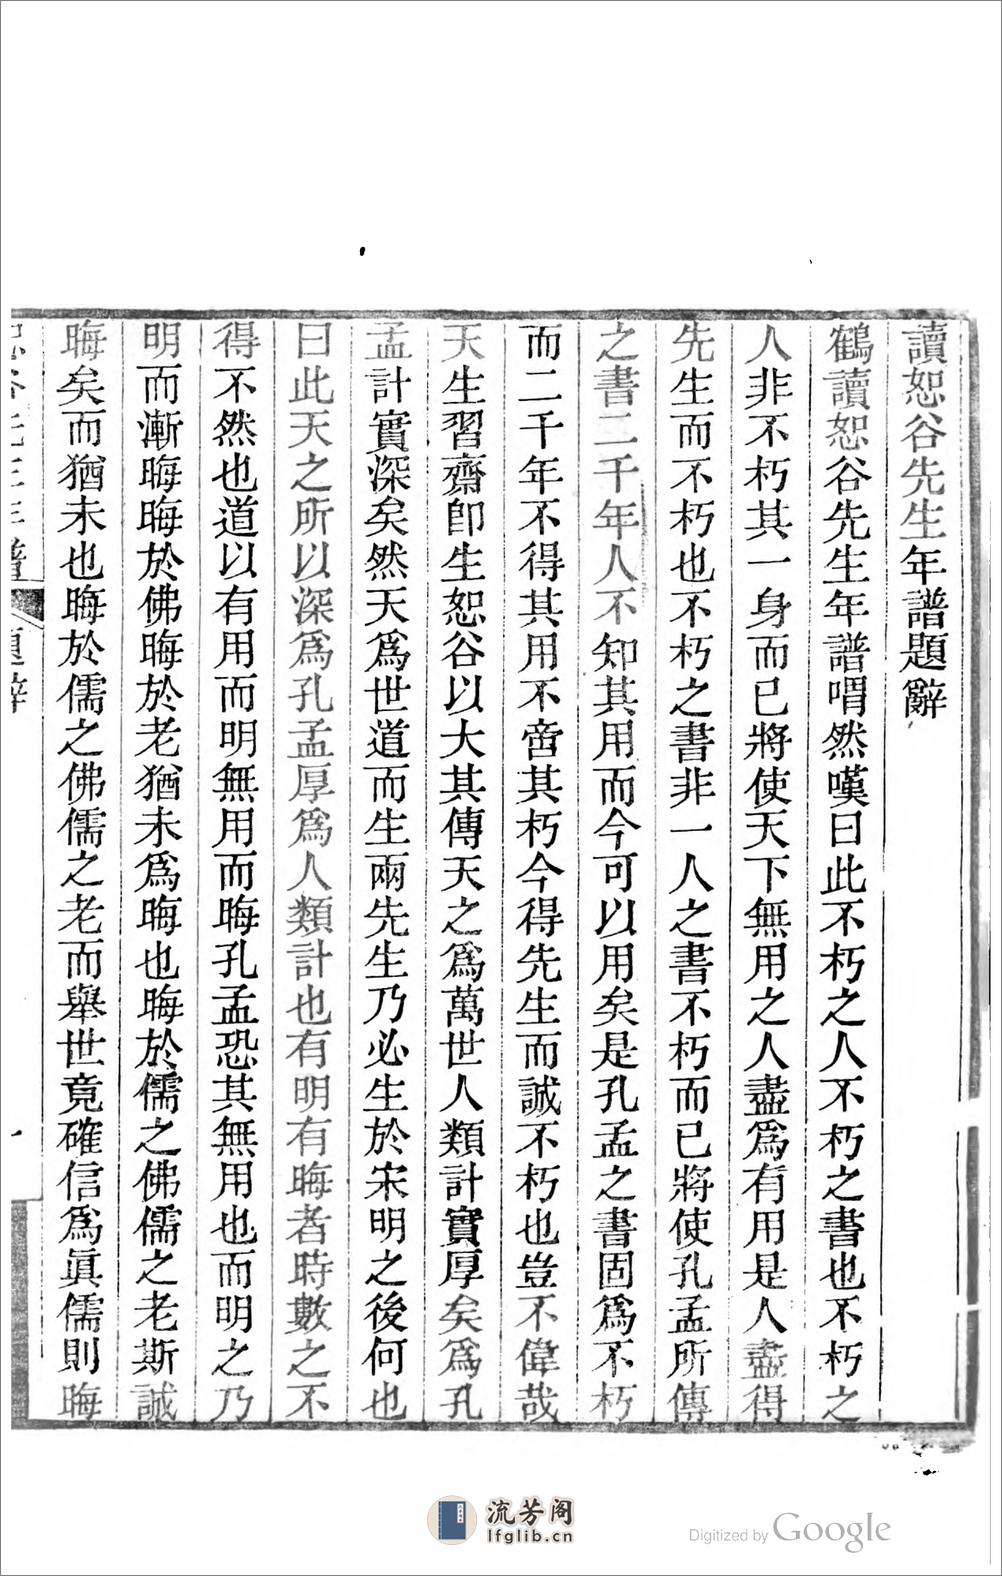 讀恕谷先生年譜題辭
鶴讀恕谷先生年譜喟然嘆曰此不朽之人不朽之書也不朽之
人非不朽其一身而已將使天下無用之人盡爲有用是人盡得
先生而不朽也不朽之書非一人之書不朽而已將使孔孟所傳
之書二千年人不知其用而今可以用矣是孔孟之書固爲不朽
而二千年不得其用不啻其朽今得先生而誠不朽也豈不偉哉
天生習齋卽生恕谷以大其傳天之爲萬世人類計實厚矣爲孔
孟計實深矣然天爲世道而生兩先生乃必生於宋明之後何也
曰此天之所以深爲孔孟厚爲人類計也有明有晦者時數之不
得不然也道以有用而明無用而晦孔孟恐其無用也而明之乃
明而漸晦晦於佛晦於老猶未爲晦也晦於儒之佛儒之老斯誠
晦矣而猶未也晦於儒之佛儒之老而舉世竟確信爲眞儒則晦
恕谷先生年譜 題辭 一
流芳阁
lfglib.cn
Digitized by Google